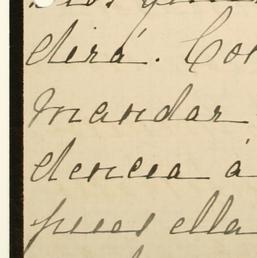 dirá. Con
mandar
dencia á
pues ella